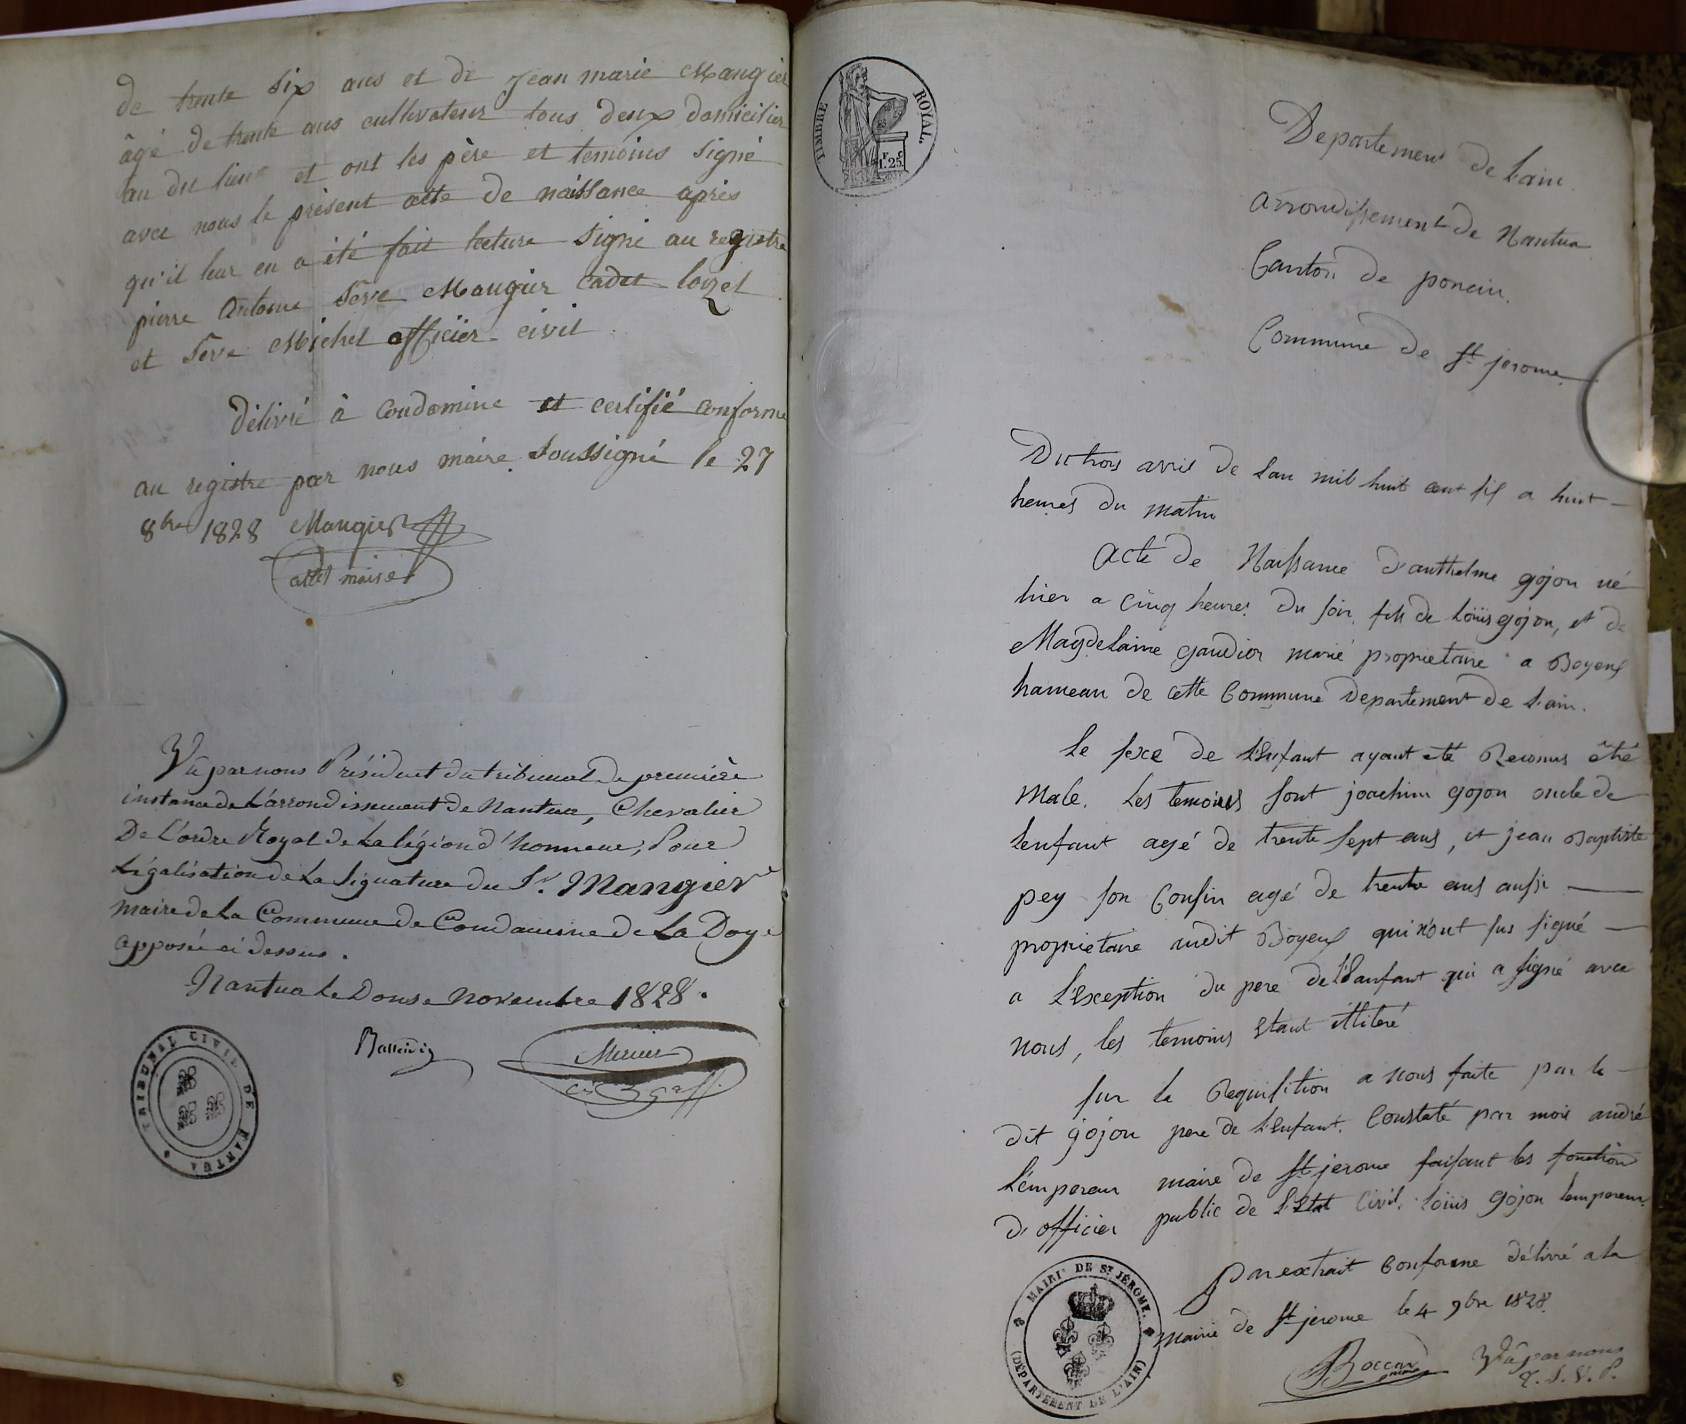 de trente six ans et de jean marie Mangier
âgé de trente ans cultivateur tous deux domicilier
au du lieu et ont les père et temoins signé
avec nous le présent acte de naissance après
qu'il leur en a été fait lecture signé au registre
pierre Antoine Seve Mangier cadet loyet
et Seve Michel officier civil
délivré à Condamine et certifié conforme
au registre par nous maire Soussigné le 27
8bre 1828 Mangier
maire
Vu par nous Président du tribunal de première
instance de L'arrondissement de Nantua, Chevalier
De L'ordre Royal de La légion d'honneur, Pour
Légalisation de La Signature du Sr. Mangier
maire de La Commune de Condamine de La Doye
apposée ci dessus.
Nantua Le Douse novembre 1828.
Mercier
TRIBUNAL CIVIL DE NANTUA
TIMBRE ROYAL
1F.25C
Departement de l'ain
arrondissement de Nantua
Canton de poncin.
Commune de St jerome
Du trois avril de l'an mil huit cent six a huit
heures du matin
acte de Naissance d'anthelme gojon né
hier a cinq heures du soir, fils de Loüis gojon, et de
Magdelaine gaudior marié proprietaire a Boyeux
hameau de cette Commune Departement de l'ain.
le sexe de l'Enfant ayant eté Reconnus êtré
male. Les temoins sont joachim gojon oncle de
lenfant agé de trente sept ans, et jean Baptiste
pey son Cousin agé de trente ans aussi
proprietaire audit Boyeux qui n'ont sus signé
a l'Exception du pere de l'Eanfant qui a signé avec
nous, les temoins Etant illiteré
sur la Requisition a nous faite par le
dit gojon pere de l'Enfant. Constaté par moi andré
Lempereur maire de St jerome faisant les fonction
d'officier public de l'Etat Civil. loüis gojon lempereur.
par extrait Conforme délivré a la
mairie de St jerome le 4 9bre 1828.
Boccard
Vû par nous
T. S. V. P.
MAIRIE DE ST JÉRÔME.
(DÉPARTEMENT DE L'AIN)